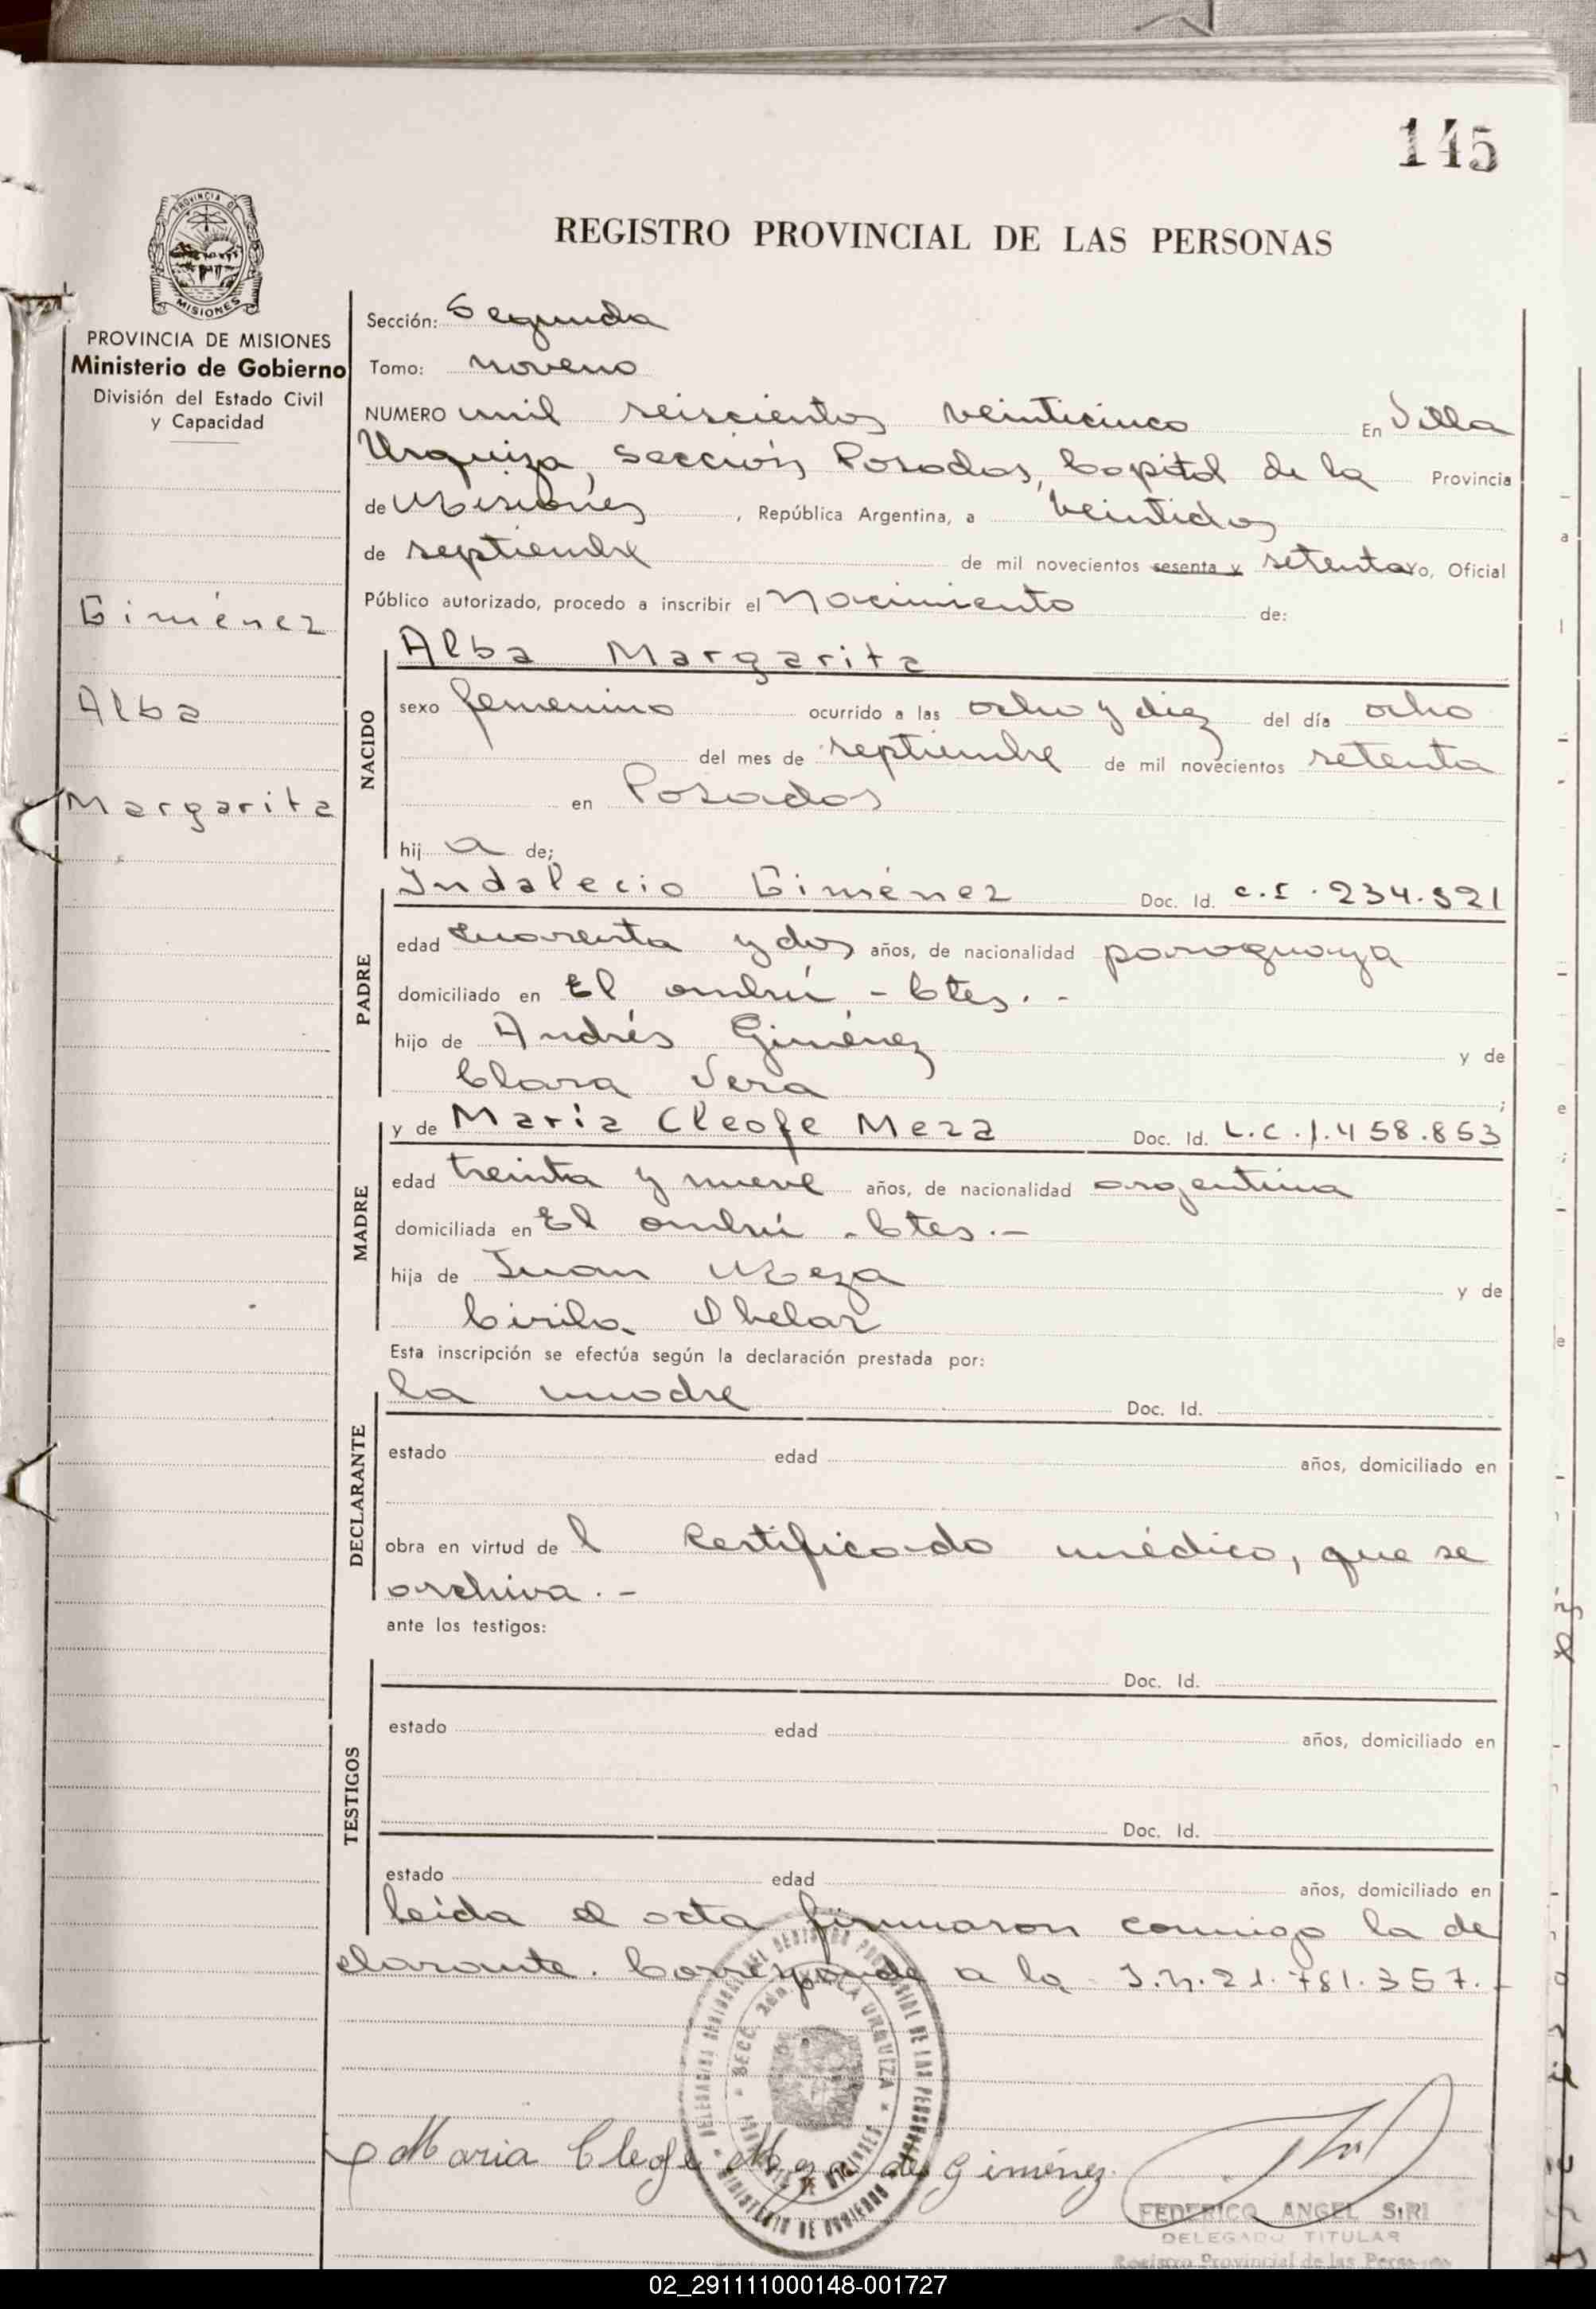 145
PROVINCIA DE
MISIONES
REGISTRO PROVINCIAL DE LAS PERSONAS
PROVINCIA DE MISIONES
Ministerio de Gobierno
División del Estado Civil
y Capacidad
Giménez
Alba
Margarita
Sección: Segunda
Tomo: noveno
NUMERO mil seiscientos veinticinco En Villa
Urquiza, Sección Posadas, Capital de la Provincia
de Misiones, República Argentina, a veintidos
de septiembre de mil novecientos sesenta y setenta yo, Oficial
Público autorizado, procedo a inscribir el Nacimiento de:
NACIDO
Alba Margarita
sexo femenino ocurrido a las ocho y diez del día ocho
del mes de septiembre de mil novecientos setenta
en Posadas
hij a de;
PADRE
Indalecio Giménez Doc. Id. C.I. 234.521
edad cuarenta y dos años, de nacionalidad paraguaya
domiciliado en El ombú - Ctes. -
hijo de Andrés Giménez y de
Clara Vera ;
MADRE
y de María Cleofe Meza Doc. Id. L.C. 1.458.853
edad treinta y nueve años, de nacionalidad argentina
domiciliada en El ombú - Ctes. -
hija de Juan Meza y de
Cirila
Esta inscripción se efectúa según la declaración prestada por:
DECLARANTE
la madre Doc. Id.
estado edad años, domiciliado en
obra en virtud de l certificado médico, que se
archiva. -
ante los testigos:
TESTIGOS
Doc. Id.
estado edad años, domiciliado en
Doc. Id.
estado edad años, domiciliado en
leída el acta firmaron conmigo la de
clarante. Corresponde a la I.N. 21.781.357. -
VILLA URQUIZA
MINISTERIO DE GOBIERNO
Maria Cleofe Meza de Gimenez
FEDERICO ANGEL SIRI
DELEGADO TITULAR
Registro Provincial de las Personas
02_291111000148-001727